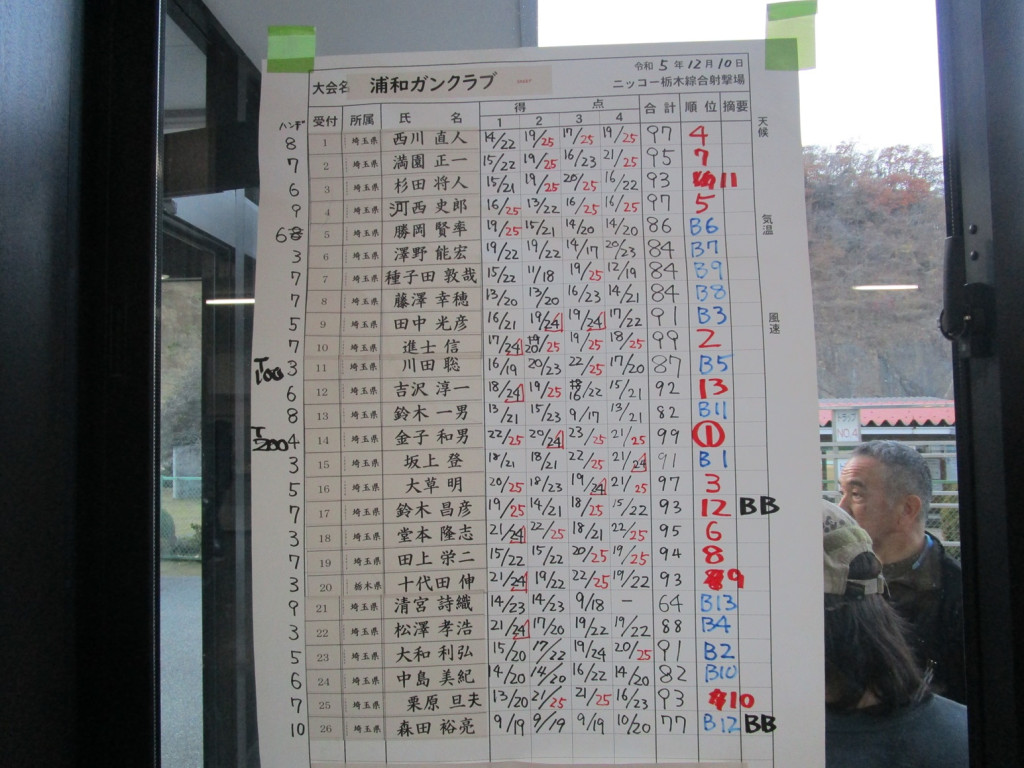 令和 5 年 12 月 10 日
大会名 浦和ガンクラブ ニッコー栃木綜合射撃場
ハンデ 受付 所属 氏 名 得 点 合計 順位 摘要 天候
1 2 3 4
8 1 埼玉県 西川 直人 14/22 19/25 17/25 19/25 97 4
7 2 埼玉県 満園 正一 15/22 19/25 16/23 21/25 95 7
6 3 埼玉県 杉田 将人 15/21 19/25 20/25 16/22 93 11
9 4 埼玉県 河西 史郎 16/25 13/22 16/25 16/25 97 5
気温
6 5 埼玉県 勝岡 賢率 19/25 15/21 14/20 14/20 86 B6
3 6 埼玉県 澤野 能宏 19/22 19/22 14/17 20/23 84 B7
7 7 埼玉県 種子田 敦哉 15/22 11/18 19/25 12/19 84 B9
7 8 埼玉県 藤澤 幸穂 13/20 13/20 16/23 14/21 84 B8
風速
5 9 埼玉県 田中 光彦 16/21 19/24 19/24 17/22 91 B3
7 10 埼玉県 進士 信 17/24 /25 19/25 18/25 99 2
T100 3 11 埼玉県 川田 聡 16/19 20/23 22/25 17/20 87 B5
6 12 埼玉県 吉沢 淳一 18/24 19/25 18/22 15/21 92 13
8 13 埼玉県 鈴木 一男 13/21 15/23 9/17 13/21 82 B11
T200 4 14 埼玉県 金子 和男 22/25 20/24 23/25 21/25 99 ①
3 15 埼玉県 坂上 登 18/21 18/21 22/25 21/24 91 B1
5 16 埼玉県 大草 明 20/25 18/23 19/24 21/25 97 3
7 17 埼玉県 鈴木 昌彦 19/25 14/21 18/25 15/22 93 12 BB
3 18 埼玉県 堂本 隆志 21/24 22/25 18/21 22/25 95 6
7 19 埼玉県 田上 栄二 15/22 15/22 20/25 19/25 94 8
3 20 栃木県 十代田 伸 21/24 19/22 22/25 19/22 93 9
9 21 埼玉県 清宮 詩織 14/23 14/23 9/18 － 64 B13
3 22 埼玉県 松澤 孝浩 21/24 17/20 19/22 19/22 88 B4
5 23 埼玉県 大和 利弘 15/20 17/22 19/24 20/25 91 B2
6 24 埼玉県 中島 美紀 14/20 14/20 16/22 14/20 82 B10
7 25 埼玉県 栗原 旦夫 13/20 21/25 21/25 16/23 93 10
10 26 埼玉県 森田 裕亮 9/19 9/19 9/19 10/20 77 B12 BB
NO.4